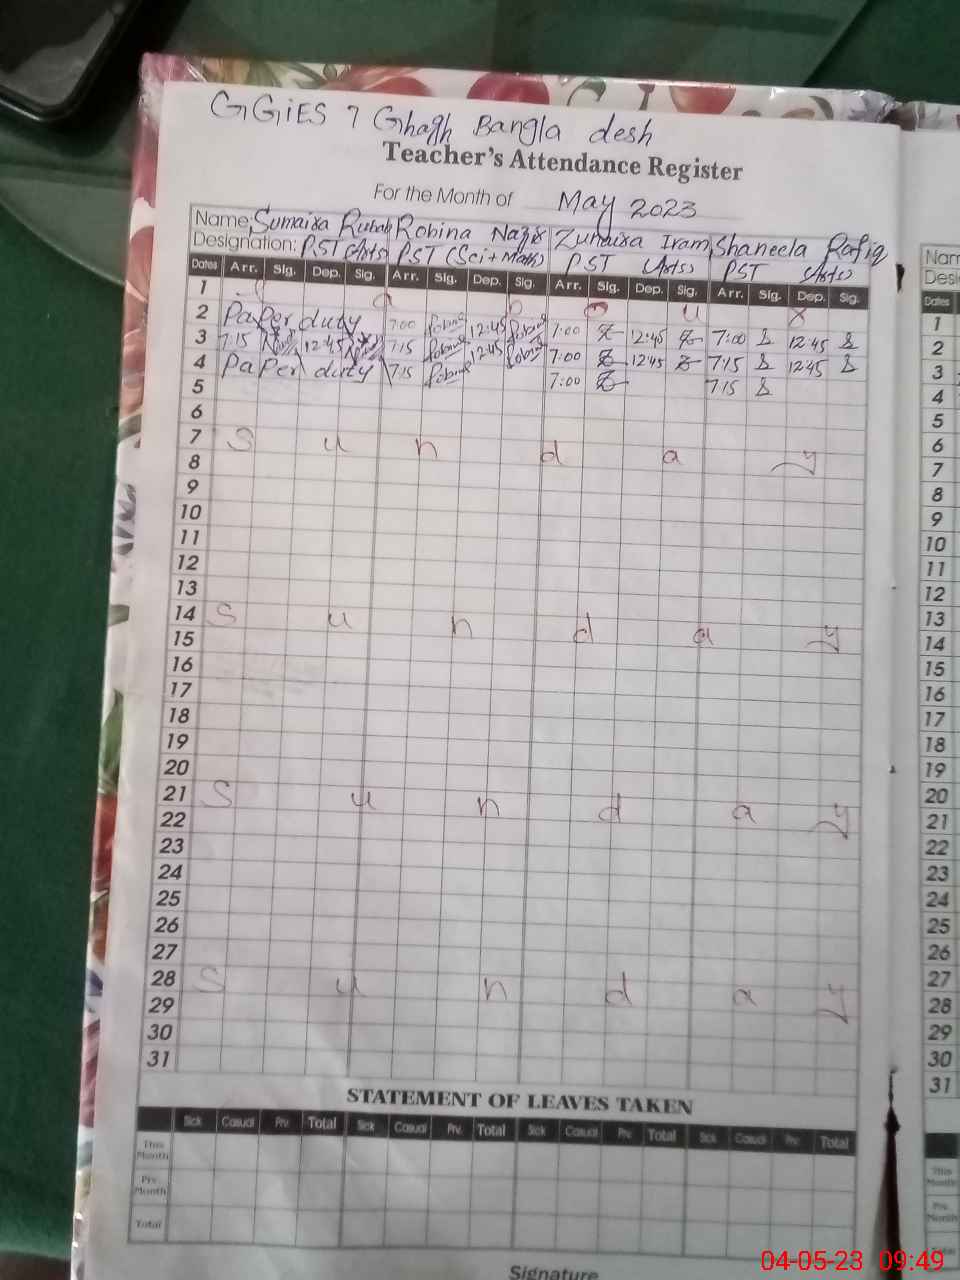 GGiES 7 Ghagh Bangla desh
Teacher's Attendance Register
For the Month of May 2023
Name: Sumaira Rubab Robina Nazir Zumaira Iram Shaneela Rafiq
Designation: PST (Arts) PST (Sci+Math) PST (Arts) PST (Arts)
Dates Arr. Sig. Dep. Sig. Arr. Sig. Dep. Sig. Arr. Sig. Dep. Sig. Arr. Sig. Dep. Sig.
1
2 Paper duty 7:00 Robina 12:45 Robina 7:00 12:45 7:00 12:45
3 7:15 12:45 7:15 Robina 12:45 Robina 7:00 12:45 7:15 12:45
4 Paper duty 7:15 Robina 7:00 7:15
5
6
7 S u n d a y
8
9
10
11
12
13
14 S u n d a y
15
16
17
18
19
20
21 S u n d a y
22
23
24
25
26
27
28 S u n d a y
29
30
31
STATEMENT OF LEAVES TAKEN
Sick Casual Prv. Total Sick Casual Prv. Total Sick Casual Prv. Total Sick Casual Prv. Total
This Month
Prv. Month
Total
Signature
Nam
Desi
Dates
1
2
3
4
5
6
7
8
9
10
11
12
13
14
15
16
17
18
19
20
21
22
23
24
25
26
27
28
29
30
31
This Month
Prv. Month
04-05-23 09:49